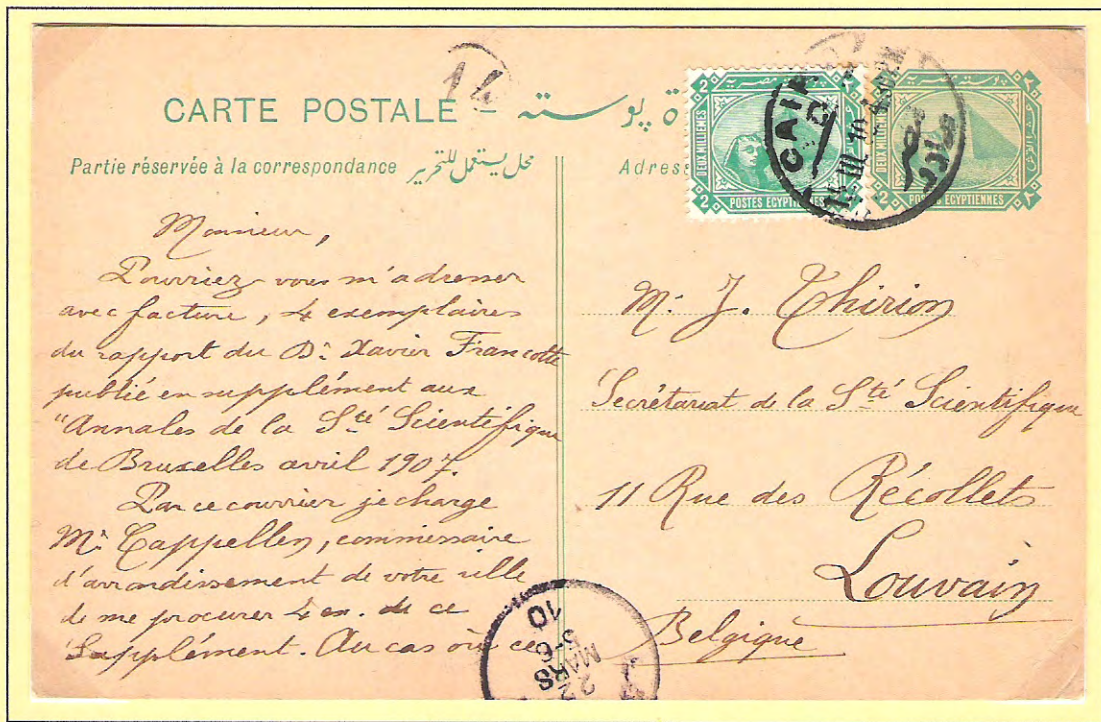 14
CARTE POSTALE - ة پوسته
Partie réservée à la correspondance محل يستعمل للتحرير
Adress
2 2
DEUX MILLIEMES
POSTES EGYPTIENNES
2 2
DEUX MILLIEMES
POSTES EGYPTIENNES
CAIR
D
III 10
Monsieur,
Pourriez-vous m'adresser
avec facture, 4 exemplaires
du rapport du Dr. Xavier Francotte
publié en supplément aux
"Annales de la Sté Scientifique
de Bruxelles avril 1907.
Par ce courrier je charge
Mr. Cappellen, commissaire
d'arrondissement de votre ville
de me procurer 4 ex. de ce
Supplément. Au cas où ce
Mr. J. Thirion
Secrétariat de la Sté Scientifique
11 Rue des Récollets
Louvain
Belgique
22
MARS
5-6
10